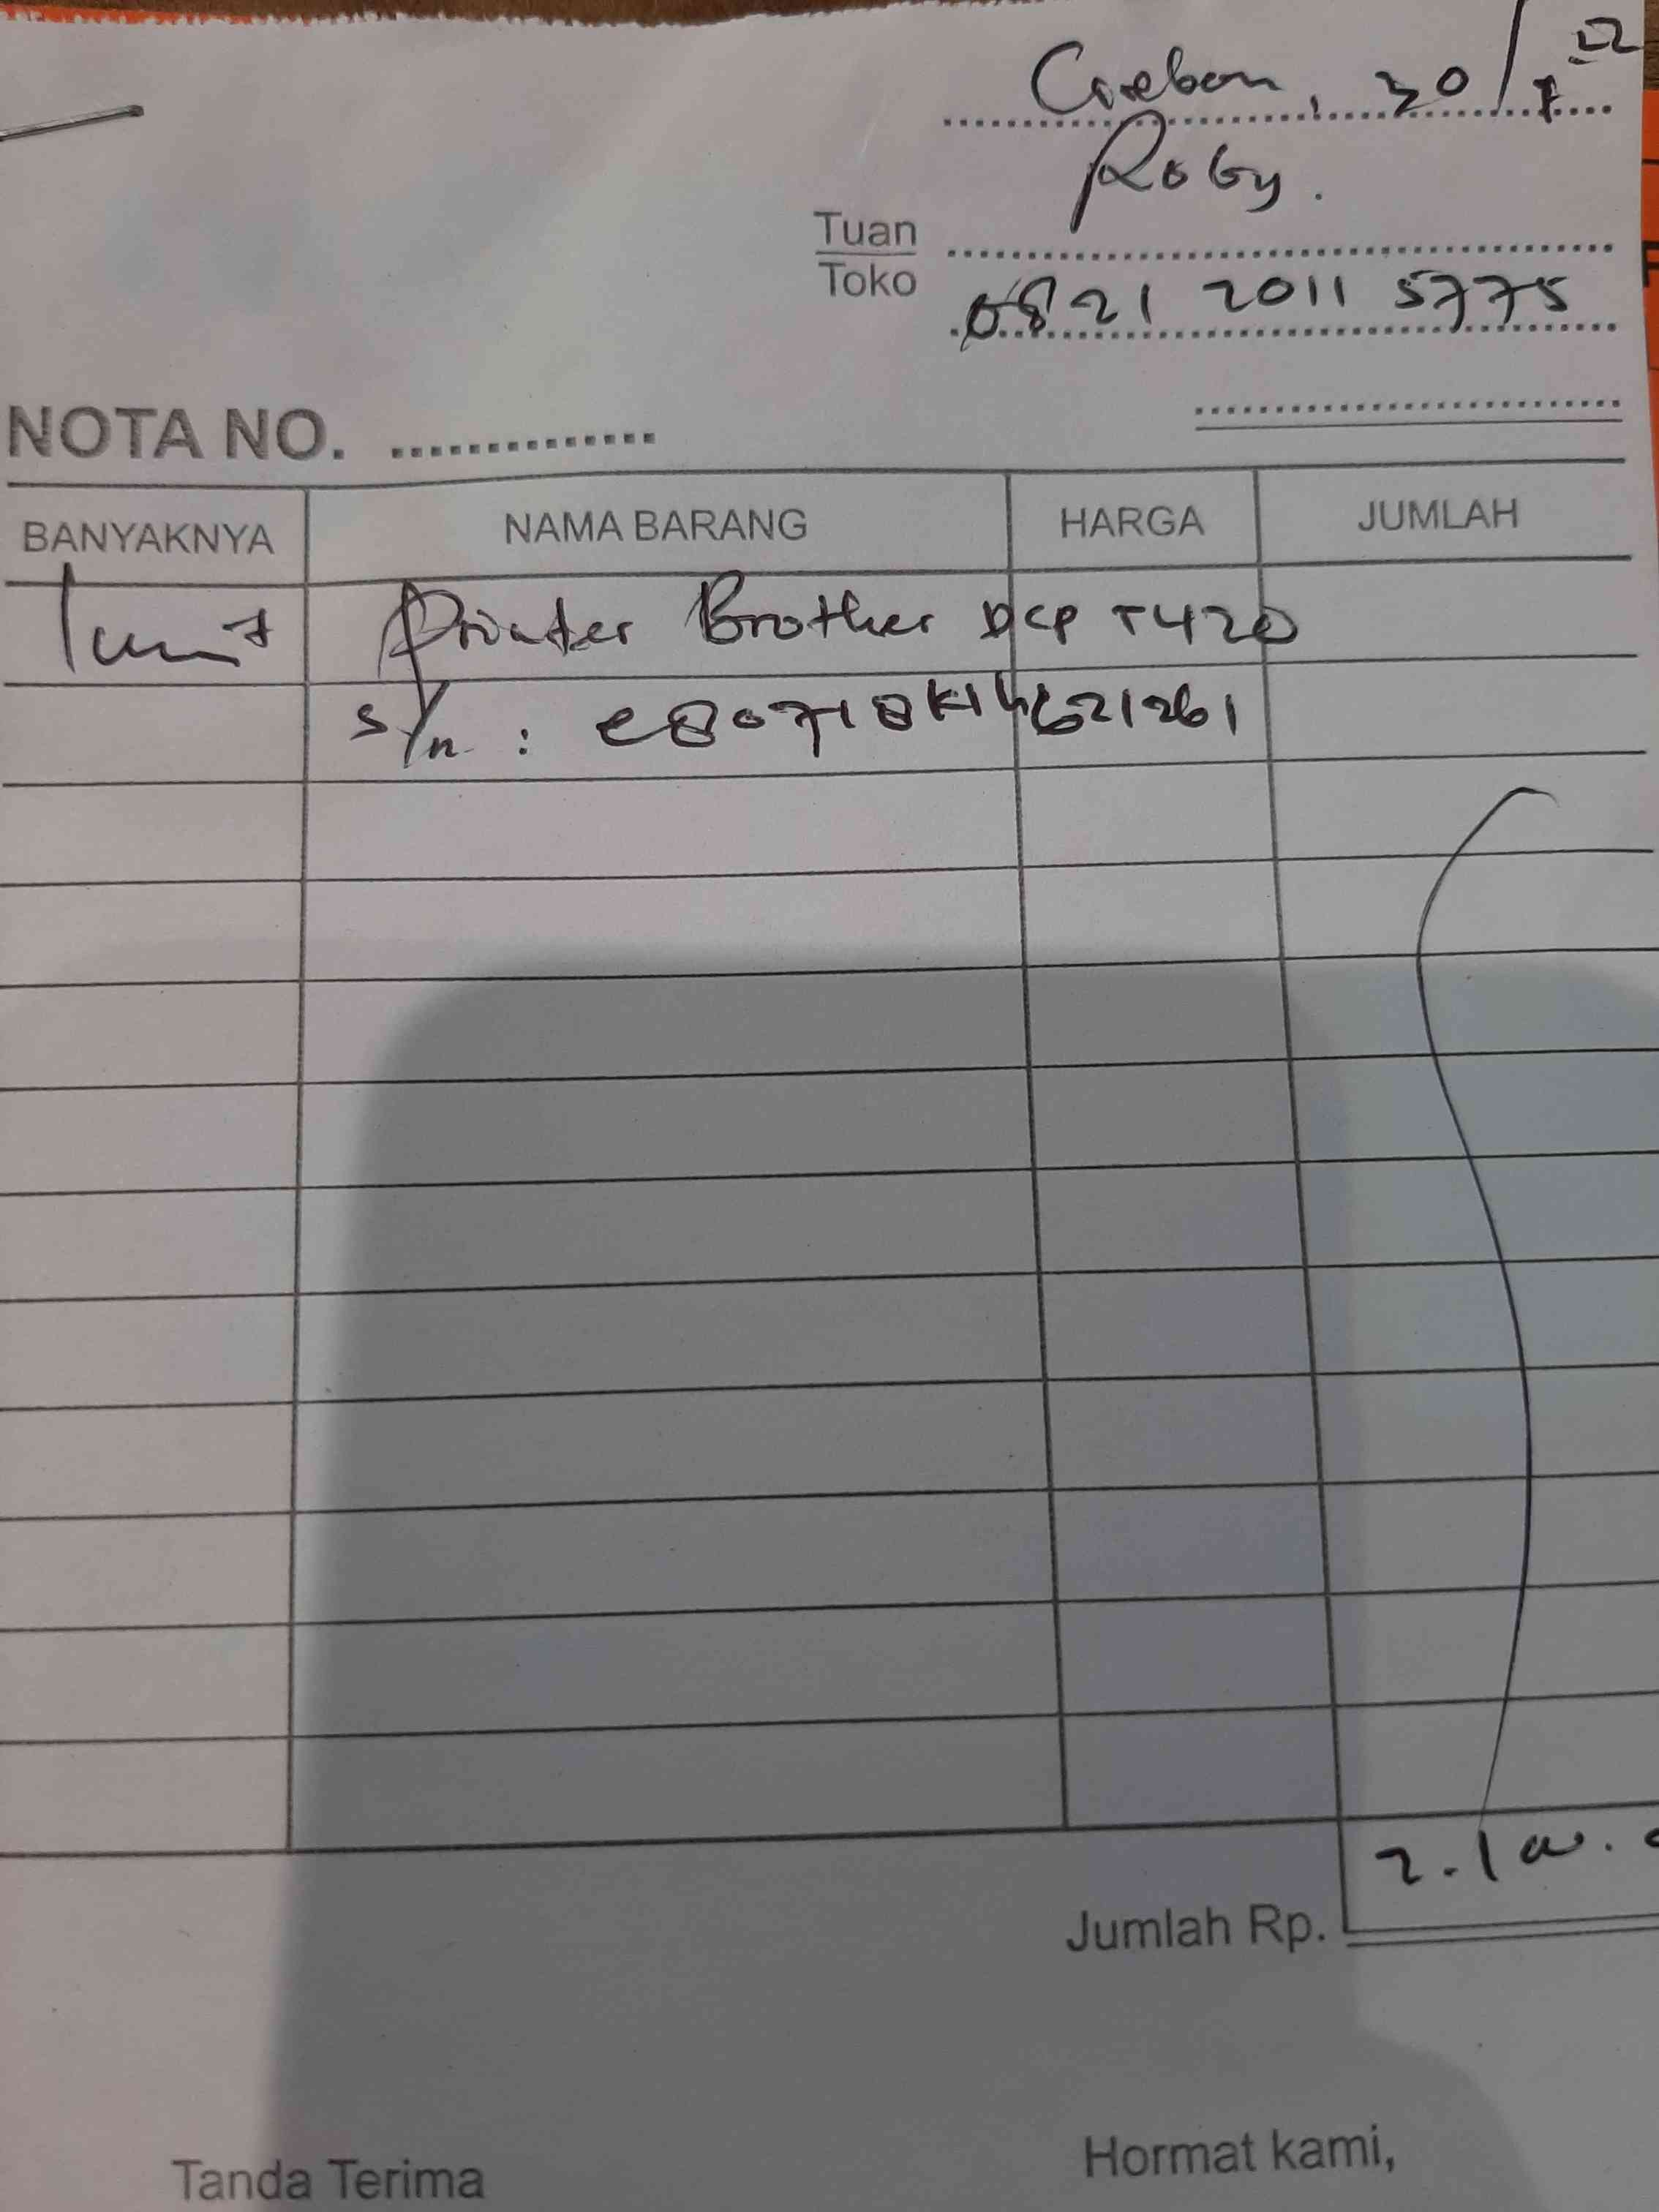 Cirebon, 30/7 22
Roby.
Tuan
Toko
0821 2011 5775
NOTA NO. ..............
BANYAKNYA NAMA BARANG HARGA JUMLAH
1 unit Printer Brother DCP T420
S/n :
Jumlah Rp.
Tanda Terima Hormat kami,